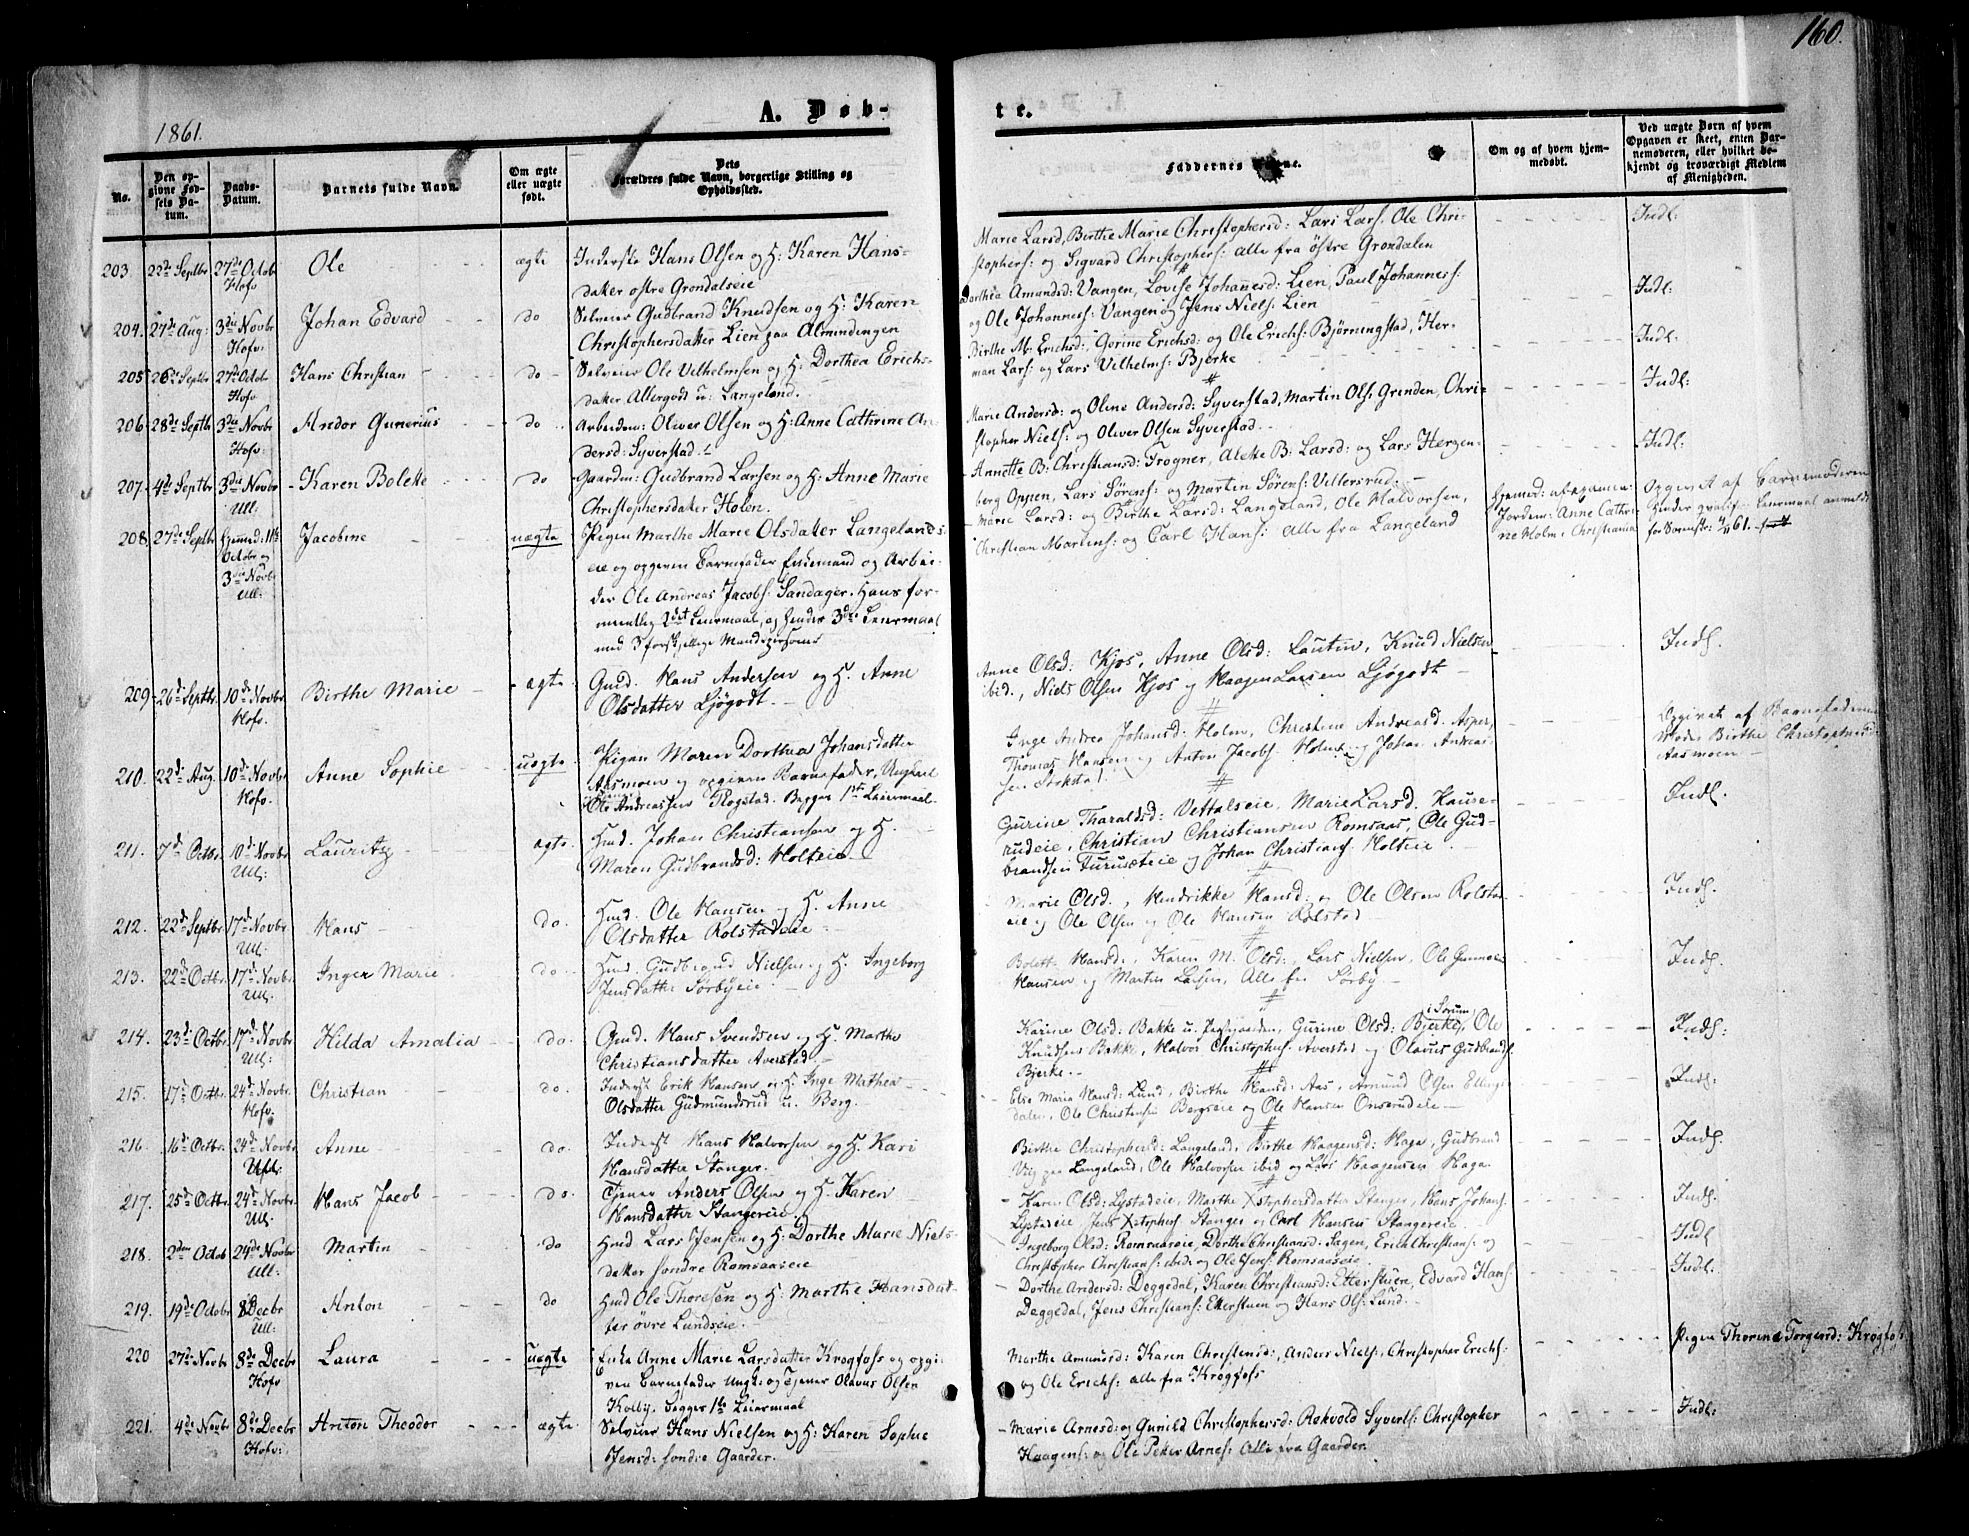 160.
1861.
A. Døb-
te.
No.
Den op-
givne Fød-
sels Da-
tum.
Daabs-
Datum.
Barnets fulde Navn.
Om ægte
eller uægte
født.
Dets
Forældres fulde Navn, borgerlige Stilling og
Opholdssted.
Faddernes Navne.
Om og af hvem hjem-
medøbt.
Ved uægte Børn af hvem
Opgaven er skeet, enten Bar-
nemoderen, eller hvilket be-
kjendt og troværdigt Medlem
af Menigheden.
203 22de Septbr 27de Octob Ole ægte Inderste Hans Olsen og H: Karen Hans-
Hofv datter østre Grøndalseie
Marie Larsd, Birthe Marie Christophersd: Lars Lars: Ole Chri- Indl:
stophers: og Sigvard Christophers: alle fra østre Grøndalen
204. 27de Aug: 3die Novbr Johan Edvard do Selveier Gudbrand Knudsen og H. Karen
Hofv: Christophersdatter Lien paa Almindingen
Dorthea Amundsd: Vangen, Lovise Johannesd: Lien, Paul Johanness: Indl:
og Ole Johanness: Vangen og Jens Niels: Lien
205 26de Septbr 27de Octobr Hans Christian do Selveier Ole Vilhelmsen og H: Dorthea Erichs-
Hofv datter Allergodt u: Langeland.
Birthe M: Erichsd: Gorine Erichsd: og Ole Erichs: Bjørningstad, Her- Indl:
man Lars: og Lars Vilhelms: Bjerke
206 28de Septbr 3die Novbr Andor Gunerius do Arbeidsm: Oliver Olsen og H: Anne Cathrine An-
Hofv. dersd: Syverstad.
Marie Andersd: og Oline Andersd: Syverstad, Martin Ols: Grenden, Chri- Indl:
stopher Niels: og Oliver Olsen Syverstad.
207. 4de Septbr 3die Novbr Karen Bolette do Gaardm: Gudbrand Larsen og H: Anne Marie
Ull: Christophersdatter Holen.
Annette B: Christiansd: Trogner, Alette B: Larsd: og Lars Herzen- Indl:
berg Oppen, Lars Sørens: og Martin Sørens: Vittersrud.
208. 27de Septbr Hjemmed: 11te Jacobine uægte Pigen Marthe Marie Olsdatter Langelands-
Octobr og eie og opgiven Barnefader Enkemand og Arbei-
3die Novbr der Ole Andreas Jacobs: Sandager. Hans for-
Ull: mentlig 2det Leiermaal, og hendes 3die Leiermaal
med 3 forskjellige Mandspersoner
Marie Larsd: og Birthe Larsd: Langeland, Ole Halvorsen,
Christian Martins: og Carl Hans: alle fra Langeland
Hjemmed: af examin:
Jordem: Anne Cathri-
ne Holm i Christiania
Opgivet af Barnemoderen
209 26de Septbr. 10de Novbr. Birthe Marie ægte. Gmd. Hans Andersen og H. Anne
Hofv. Olsdatter Ljøgodt.
Anne Olsd: Kjos, Anne Olsd: Lautin, Knud Nielsen Indl.
ibid., Niels Olsen Kjos og Haagen Larsen Ljøgodt
210. 22de Aug. 10de Novbr Anne Sophie uægte. Pigen Maren Dorthea Johansdatter
Hofv. Aasmoen og opgiven Barnefader, Ungkarl
Ole Andreassen Rogstad. Begges 1ste Leiermaal.
Inge Andrea Johansd: Holm, Christine Andreasd. Asper,
Thomas Hansen og Anton Jacobs: Holm og Johan Andreas-
sen
Opgivet af Barnefaderens
Moder Birthe Christophersd:
Aasmoen
211. 7de Octbr. 10de Novbr Lauritz ægte Hmd. Johan Christiansen og H.
Ull: Maren Gudbrandsd: Holteie
Gurine Tharaldsd: Vettalseie, Marie Larsd. Hause- Indl.
rudeie, Christian Christiansen Romsaas, Ole Gud-
brandsen Furuseteie og Johan Christians: Holteie
212. 22de Septbr. 17de Novbr Hans do. Hmd. Ole Hansen og H. Anne
Ull: Olsdatter Rolstadeie
Marie Olsd., Hendrikke Hansd: og Ole Olsen Rolstad- Indl.
eie og Ole Olsen og Ole Hansen Rolstad
213. 22de Octbr. 17de Novbr. Inger Marie do. Hmd. Gudbrand Nielsen og H. Ingeborg
Ull: Jensdatter Sørbyeie
Bolette Hansd:, Karen M. Olsd:, Lars Nielsen, Ole Indl.
Hansen og Martin Larsen, Alle fra Sørby
214. 23de Octbr. 17de Novbr. Hilda Amalia do. Gmd. Hans Svendsen og H. Marthe
Ull: Christiansdatter Averstad
i Sørum
Karine Olsd: Bakke u. Præstgaarden, Gurine Olsd: Bjerke, Ole Indl:
Knudsen Bakke, Halvor Christophers. Averstad og Olavus Gudbrands.
Bjerke.
215. 17de Octbr. 24de Novbr. Christian do. Inderst Erik Hansen og H. Inge Mathea
Hofv. Olsdatter Gudmundsrud u. Berg.
Else Maria Hansd: Lund, Birthe Hansd: Aas, Amund Olsen Ellings- Indl:
dalen, Ole Christensen Bergseie og Ole Hansen Onsrudeie
216. 16de Octbr. 24de Novbr. Anne do. Inderst Hans Halvorsen og H. Kari
Ull: Hansdatter Stanger.
Birthe Christophersd: Langeland, Birthe Haagensd: Haga, Gudbrand Indl.
paa Langeland, Ole Halvorsen ibid og Lars Haagensen Haga
217. 25de Octbr. 24de Novbr. Hans Jacob do. Tjener Anders Olsen og H. Karen
Ull. Hansdatter Stangereie
Karen Olsd: Lystadeie, Marthe Xstophersdatter Stanger, Hans Johans. Indl.
Lystadeie, Jens Xstophers Stanger og Carl Hansen Stangereie
218. 2den Octob 24de Novbr Martin do Hmd Lars Jensen og H: Dorthe Marie Niels-
Ull: datter søndre Romsaaseie
Ingeborg Olsd: Romsaaseie, Dorthe Christiansd: Sagen, Erich Christians: og Indl
Christopher Christians: ibid: og Ole Jens: Romsaaseie.
219. 19de Octobr 8de Decbr Anton do Hmd Ole Thoresen og H: Marthe Hansdat-
Ull: ter øvre Lundseie.
Dorthe Andersd: Deggedal, Karen Christiansd: Etterstuen, Edvard Hans: Indl.
Deggedal, Jens Christians: Etterstuen og Hans Ols: Lund.
220 27de Novbr 8de Decbr Laura uægte Enke Anne Marie Larsdatter Krogfoss og opgi-
Hofv ven Barnefader Ungk: og Tjener Olavus Olsen
Kolby. Begges 1ste Leiermaal
Marthe Amundsd: Karen Christensd:, Anders Niels:, Christopher Erichs:
og Ole Erichs: alle fra Krogfoss
Pigen Thorine Torgersd: Krogfoss
221. 4de Novbr 8de Decbr Anton Theodor ægte Selveier Hans Nielsen og H: Karen Sophie
Hofv: Jensd: søndre Gaarder.
Marie Arnesd: og Gunild Christophersd: Rekvold Syverts: Christopher Indl:
Haagens: og Ole Peter Arnes: alle fra Gaarder.